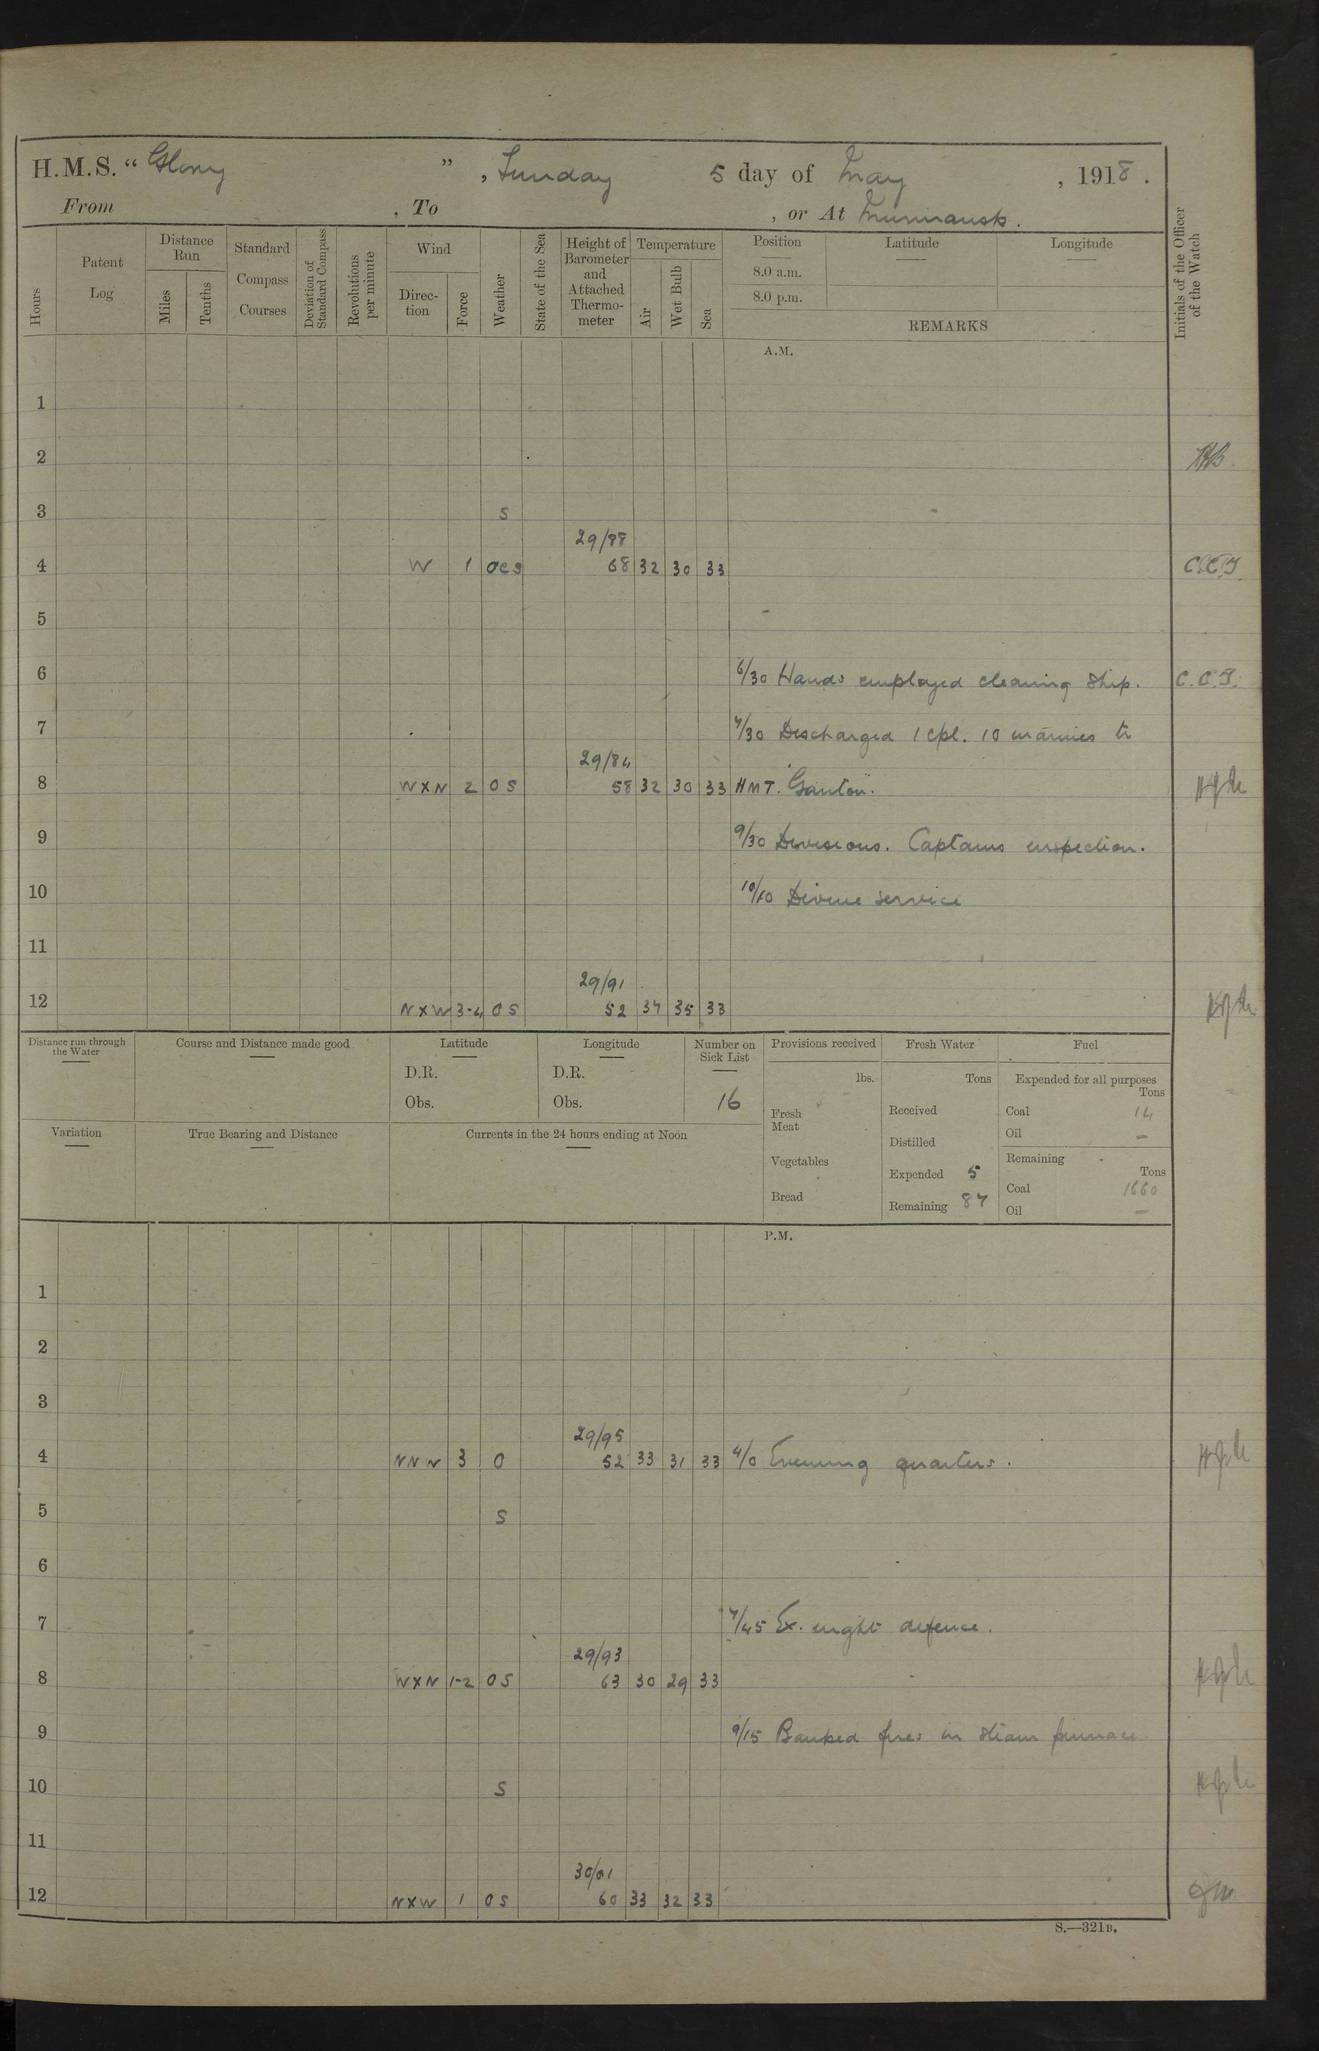 H.M.S. “ Glory ” , Sunday 5 day of May , 1918 .
From , To , or At Murmansk .
Hours
Patent Log
Distance Run
Miles
Tenths
Standard Compass Courses
Deviation of Standard Compass
Revolutions per minute
Wind
Direc- tion
Force
Weather
State of the Sea
Height of Barometer and Attached Thermo- meter
Temperature
Air
Wet Bulb
Sea
Position
Latitude
Longitude
8.0 a.m.
8.0 p.m.
REMARKS
Initials of the Officer of the Watch
A.M.
1
2
3 S
29/88
4 W 1 oes 68 32 30 33 C.C.T.
5
6 6/30 Hands employed cleaning ship. C.C.T.
7 7/30 Discharged 1 Cpl. 10 marines to
29/84
8 W X N 2 O S 58 32 30 33 HMT. "Ganton".
9 9/30 Divisions. Captains inspection.
10 10/10 Divine service
11
29/91
12 N X W 3-4 O S 52 37 35 33
Distance run through the Water
Course and Distance made good
Latitude
D.R.
Obs.
Longitude
D.R.
Obs.
Number on Sick List
16
Provisions received
lbs.
Fresh Meat
Vegetables
Bread
Fresh Water
Tons
Received
Distilled
Expended 5
Remaining 87
Fuel
Expended for all purposes
Tons
Coal 14
Oil —
Remaining
Tons
Coal 1660
Oil —
Variation
True Bearing and Distance
Currents in the 24 hours ending at Noon
P.M.
1
2
3
29/95
4 N N W 3 O 52 33 31 33 4/0 Evening quarters.
5 S
6
7 7/45 Ex. night defence.
29/93
8 W X N 1-2 O S 63 30 29 33
9 9/15 Banked fires in steam pinnace
10 S
11
30/01
12 N X W 1 O S 60 33 32 33
S.—321B.